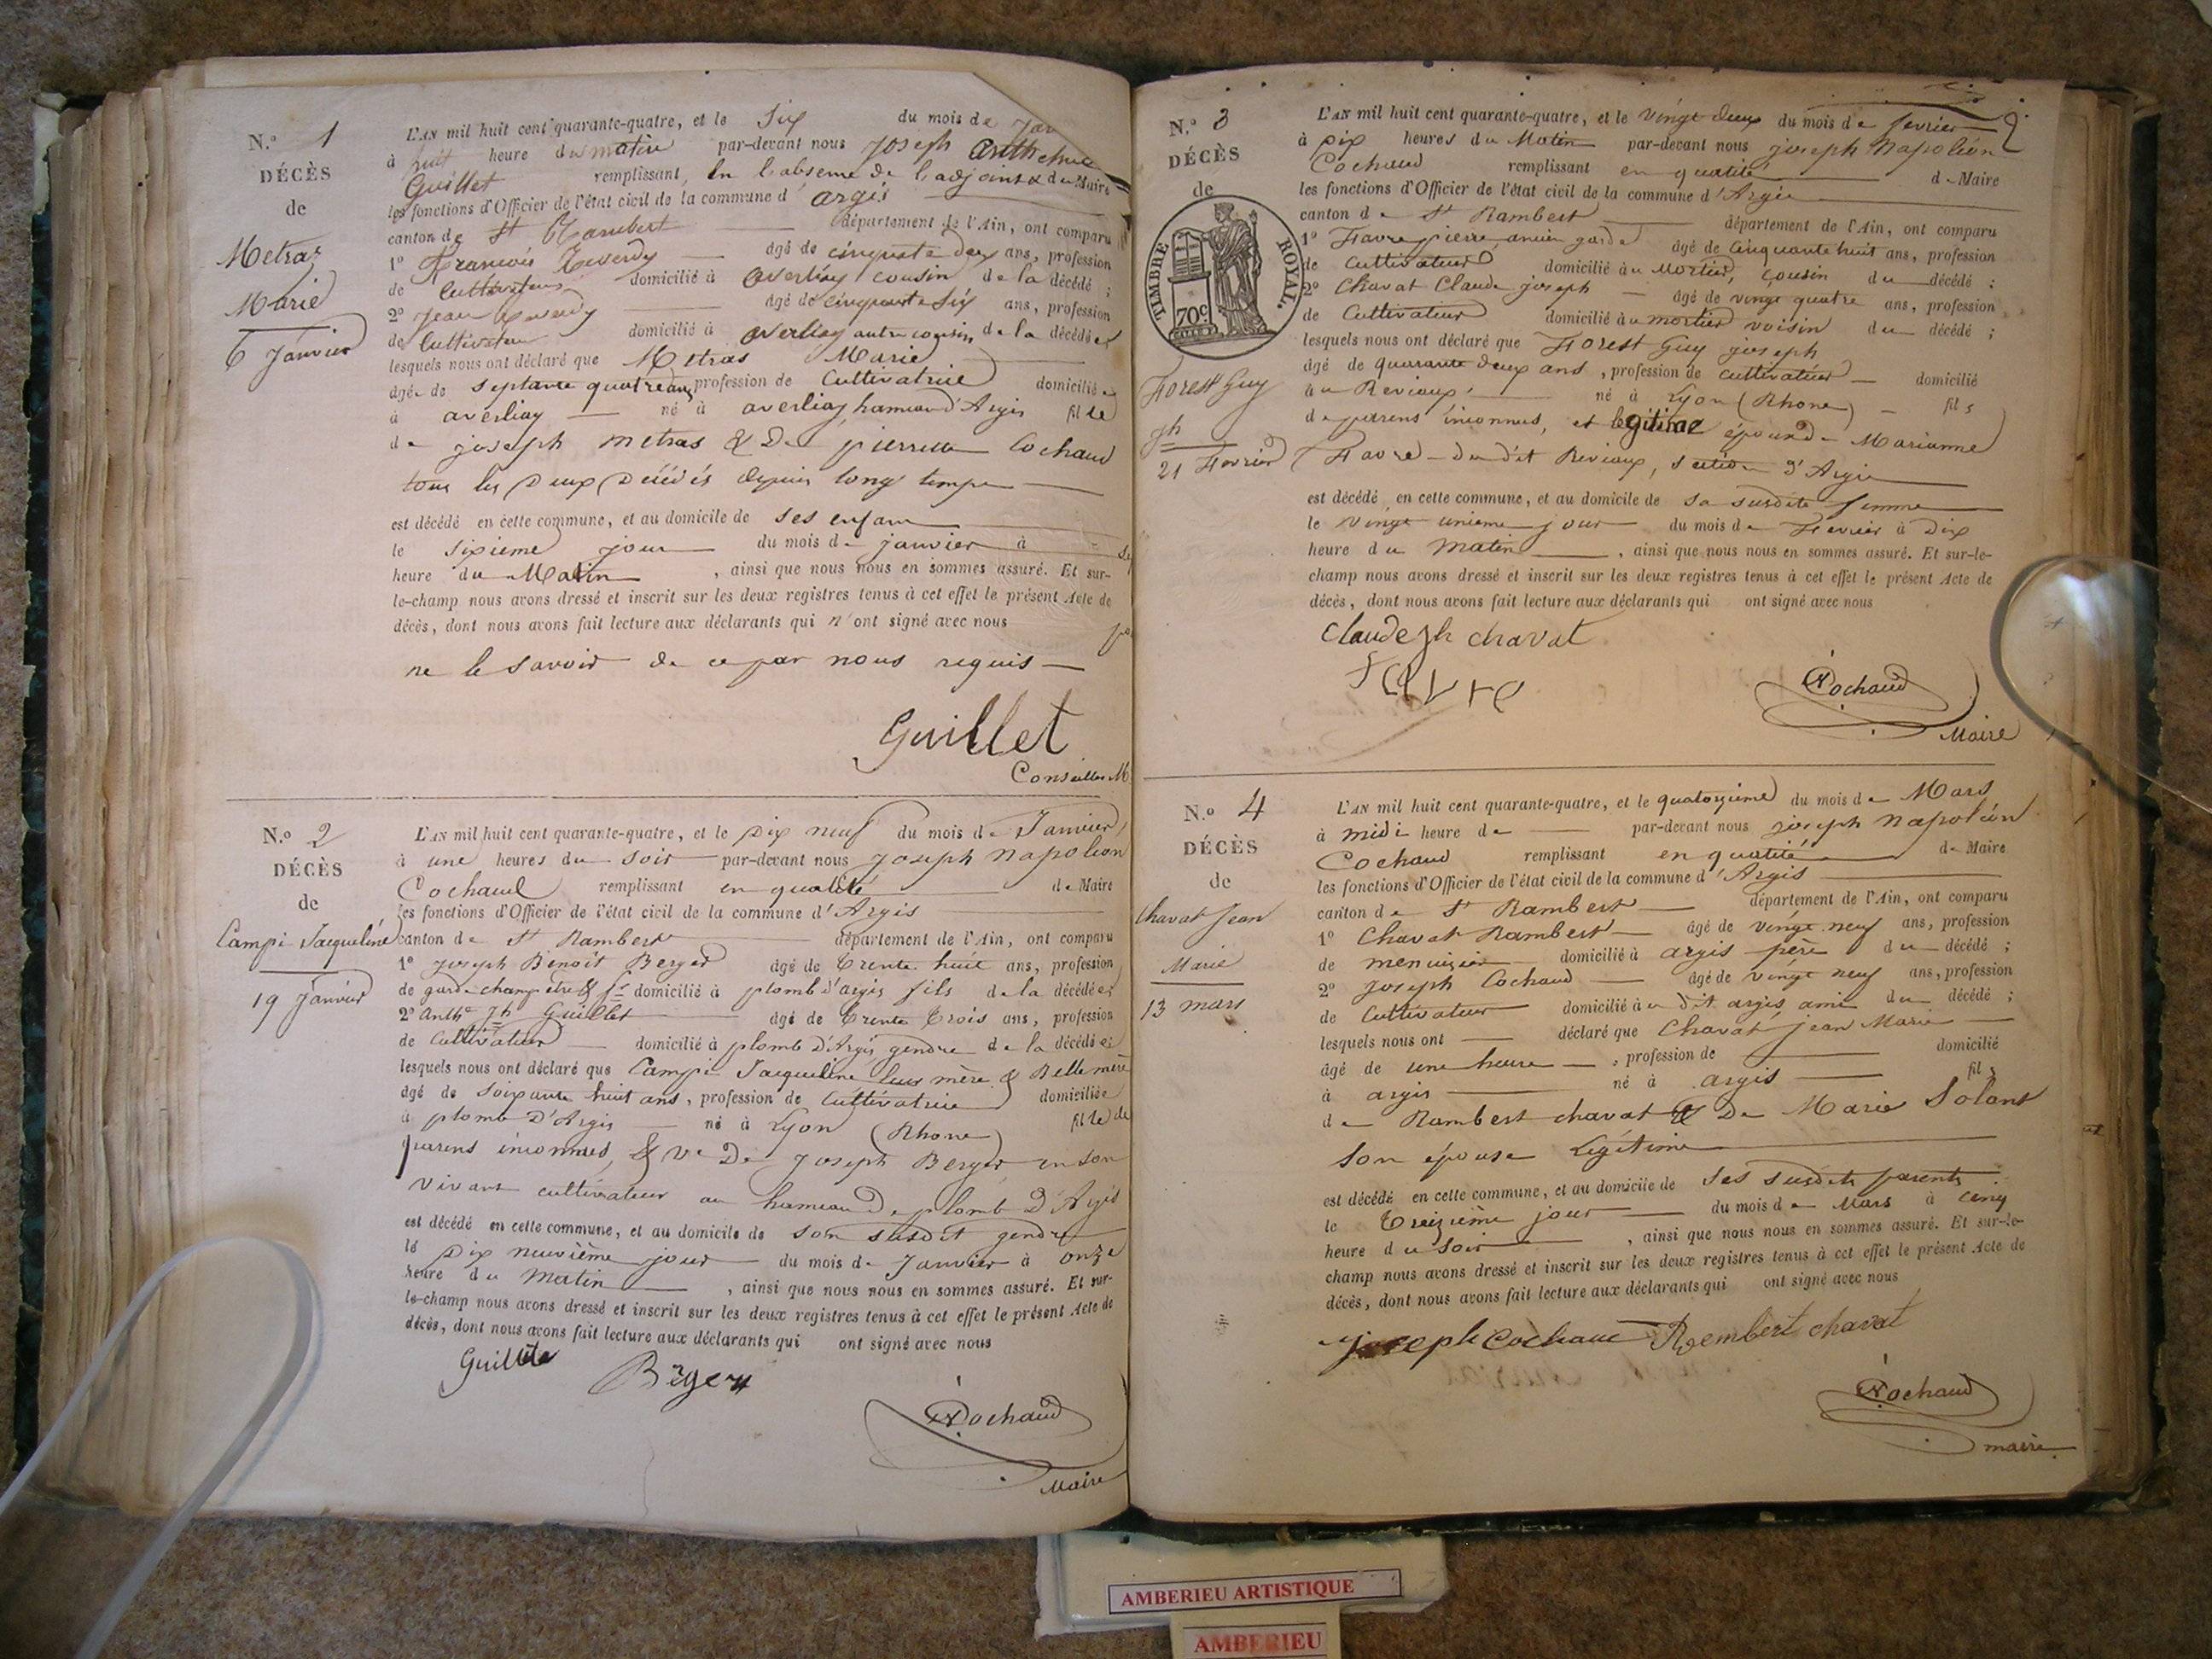 N.º 1
DÉCÈS
de
Metraz
Marie
6 Janvier
L'AN mil huit cent quarante-quatre, et le Six du mois de Jan
à huit heure du matin par-devant nous Joseph Anthelme
Guillet remplissant, en l'absence de l'adjoint & du Maire
les fonctions d'Officier de l'état civil de la commune d'argis
canton de St Rambert département de l'Ain, ont comparu
1º François Reverdy âgé de cinquante deux ans, profession
de Cultivateur domicilié à averliaz cousin de la décédé ;
2º Jean Reverdy âgé de cinquante Six ans, profession
de Cultivateur domicilié à averliaz autre cousin de la décédé
lesquels nous ont déclaré que Metras Marie
âgée de septante quatre ans profession de Cultivatrice domiciliée
à averliaz né à averliaz, hameau d'Argis fille
de joseph metras & De pierrette Cochaud
tous les Deux Décédés depuis long temps
est décédé en cette commune, et au domicile de ses enfans
le sixieme jour du mois de janvier à
heure du Matin , ainsi que nous nous en sommes assuré. Et sur-
le-champ nous avons dressé et inscrit sur les deux registres tenus à cet effet le présent Acte de
décès, dont nous avons fait lecture aux déclarants qui n'ont signé avec nous
ne le savoir de ce par nous requis
Guillet
Conseiller M
N.º 2
DÉCÈS
de
Campi Jacqueline
19 Janvier
L'AN mil huit cent quarante-quatre, et le Dix neuf du mois de Janvier,
à une heures du soir par-devant nous Joseph Napoléon
Cochaud remplissant en qualité de Maire
les fonctions d'Officier de l'état civil de la commune d'Argis
canton de St Rambert département de l'Ain, ont comparu
1º Joseph Benoit Berger âgé de Trente huit ans, profession
de garde champêtre & domicilié à plomb d'argis fils de la décédée ;
2º Anthe Jh Guillet âgé de Trente Trois ans, profession
de Cultivateur domicilié à plomb D'Argis gendre de la décédée
lesquels nous ont déclaré que Campi Jacqueline leur mère & Belle mère
âgé de Soixante huit ans, profession de Cultivatrice domiciliée
à plomb D'Argis né à Lyon (Rhone) fille de
parens inconnus, & Ve De Joseph Berger en son
vivant cultivateur au hameau De plomb D'Argis
est décédé en cette commune, et au domicile de son susdit gendre
le Dix neuvième jour du mois de Janvier à onze
heure du Matin , ainsi que nous nous en sommes assuré. Et sur-
le-champ nous avons dressé et inscrit sur les deux registres tenus à cet effet le présent Acte de
décès, dont nous avons fait lecture aux déclarants qui ont signé avec nous
Guillet
Berger
Cochaud
Maire
N.º 3
DÉCÈS
de
TIMBRE ROYAL.
70c
Forest Guy
jh
21 Fevrier
L'AN mil huit cent quarante-quatre, et le vingt deux du mois de fevrier
à Dix heures du Matin par-devant nous joseph Napoléon
Cochaud remplissant en qualité de Maire
les fonctions d'Officier de l'état civil de la commune d'Argis
canton de St Rambert département de l'Ain, ont comparu
1º Favre pierre, ancien garde âgé de Cinquante huit ans, profession
de Cultivateur domicilié au Mortier, cousin du décédé ;
2º Chavat Claude joseph âgé de vingt quatre ans, profession
de Cultivateur domicilié au mortier voisin du décédé ;
lesquels nous ont déclaré que Forest Guy joseph
âgé de quarante deux ans, profession de cultivateur domicilié
au Reviaux né à Lyon (Rhone) fils
de parens inconnus, et légitime époux de Marianne
Favre du dit Reviaux, section d'Argis
est décédé en cette commune, et au domicile de sa susdite femme
le vingt unieme jour du mois de Fevrier à Dix
heure du Matin , ainsi que nous nous en sommes assuré. Et sur-le-
champ nous avons dressé et inscrit sur les deux registres tenus à cet effet le présent Acte de
décès, dont nous avons fait lecture aux déclarants qui ont signé avec nous
Claude jh chavat
Favre
Cochaud
Maire
N.º 4
DÉCÈS
de
Chavat Jean
Marie
13 mars
L'AN mil huit cent quarante-quatre, et le quatorzieme du mois de Mars
à midi heure de par-devant nous joseph napoléon
Cochaud remplissant en qualité de Maire
les fonctions d'Officier de l'état civil de la commune d'Argis
canton de St Rambert département de l'Ain, ont comparu
1º Chavat Rambert âgé de vingt neuf ans, profession
de menuisier domicilié à argis père du décédé ;
2º Joseph Cochaud âgé de vingt neuf ans, profession
de Cultivateur domicilié au dit argis, ami du décédé ;
lesquels nous ont déclaré que Chavat jean Marie
âgé de une heure , profession de domicilié
à argis né à argis fils
de Rambert chavat & De Marie Solant
son épouse Légitime
est décédé en cette commune, et au domicile de ses susdits parents
le Treizième jour du mois de Mars à cinq
heure du Soir , ainsi que nous nous en sommes assuré. Et sur-le-
champ nous avons dressé et inscrit sur les deux registres tenus à cet effet le présent Acte de
décès, dont nous avons fait lecture aux déclarants qui ont signé avec nous
joseph Cochaud Rembert chavat
Cochaud
maire
AMBERIEU ARTISTIQUE
AMBERIEU